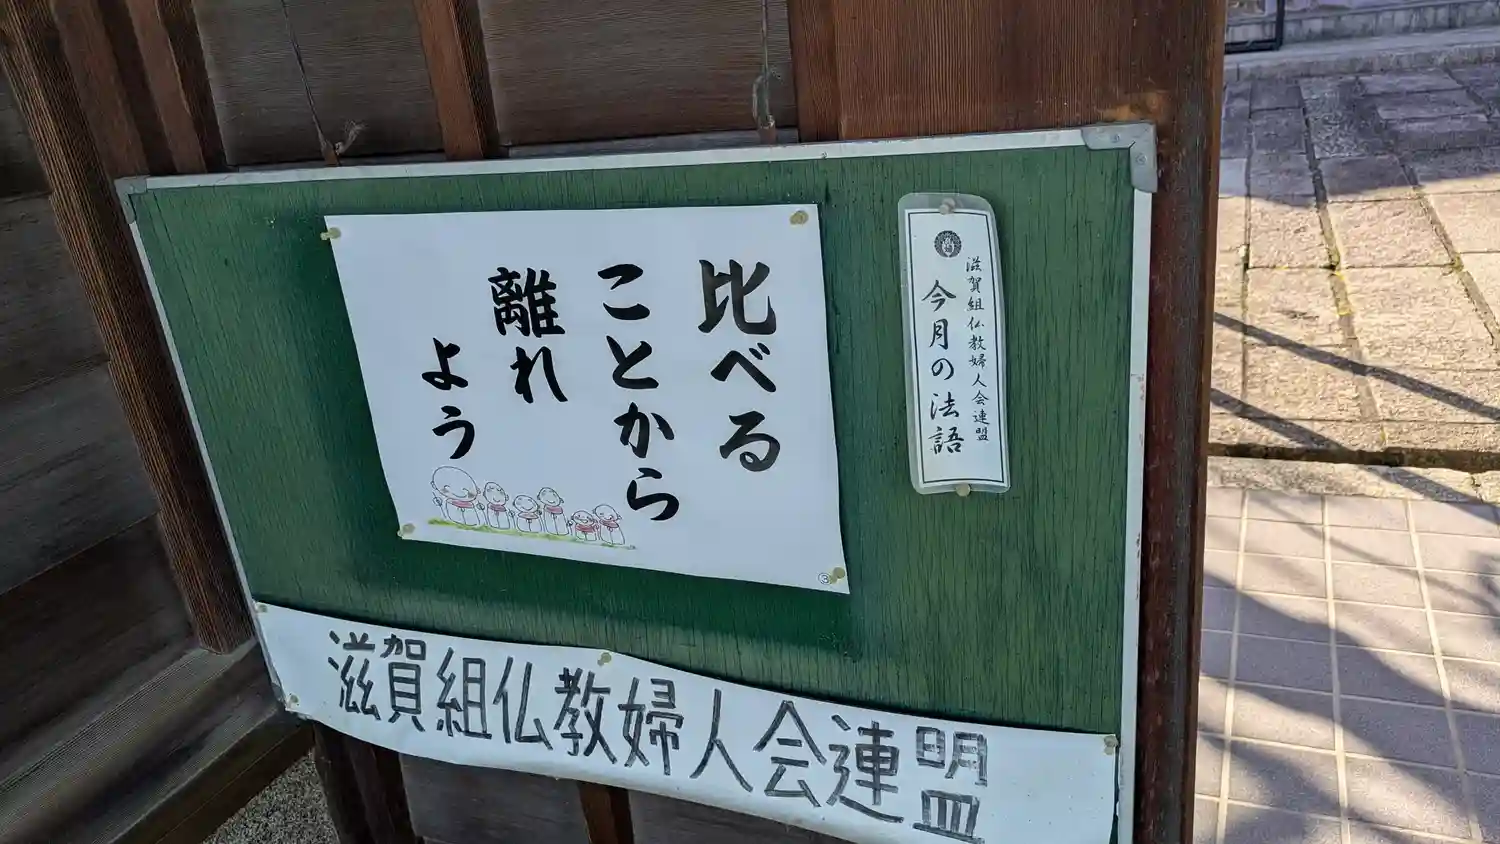 滋賀組仏教婦人会連盟
今月の法語
比べる
ことから
離れ
よう
③
滋賀組仏教婦人会連盟